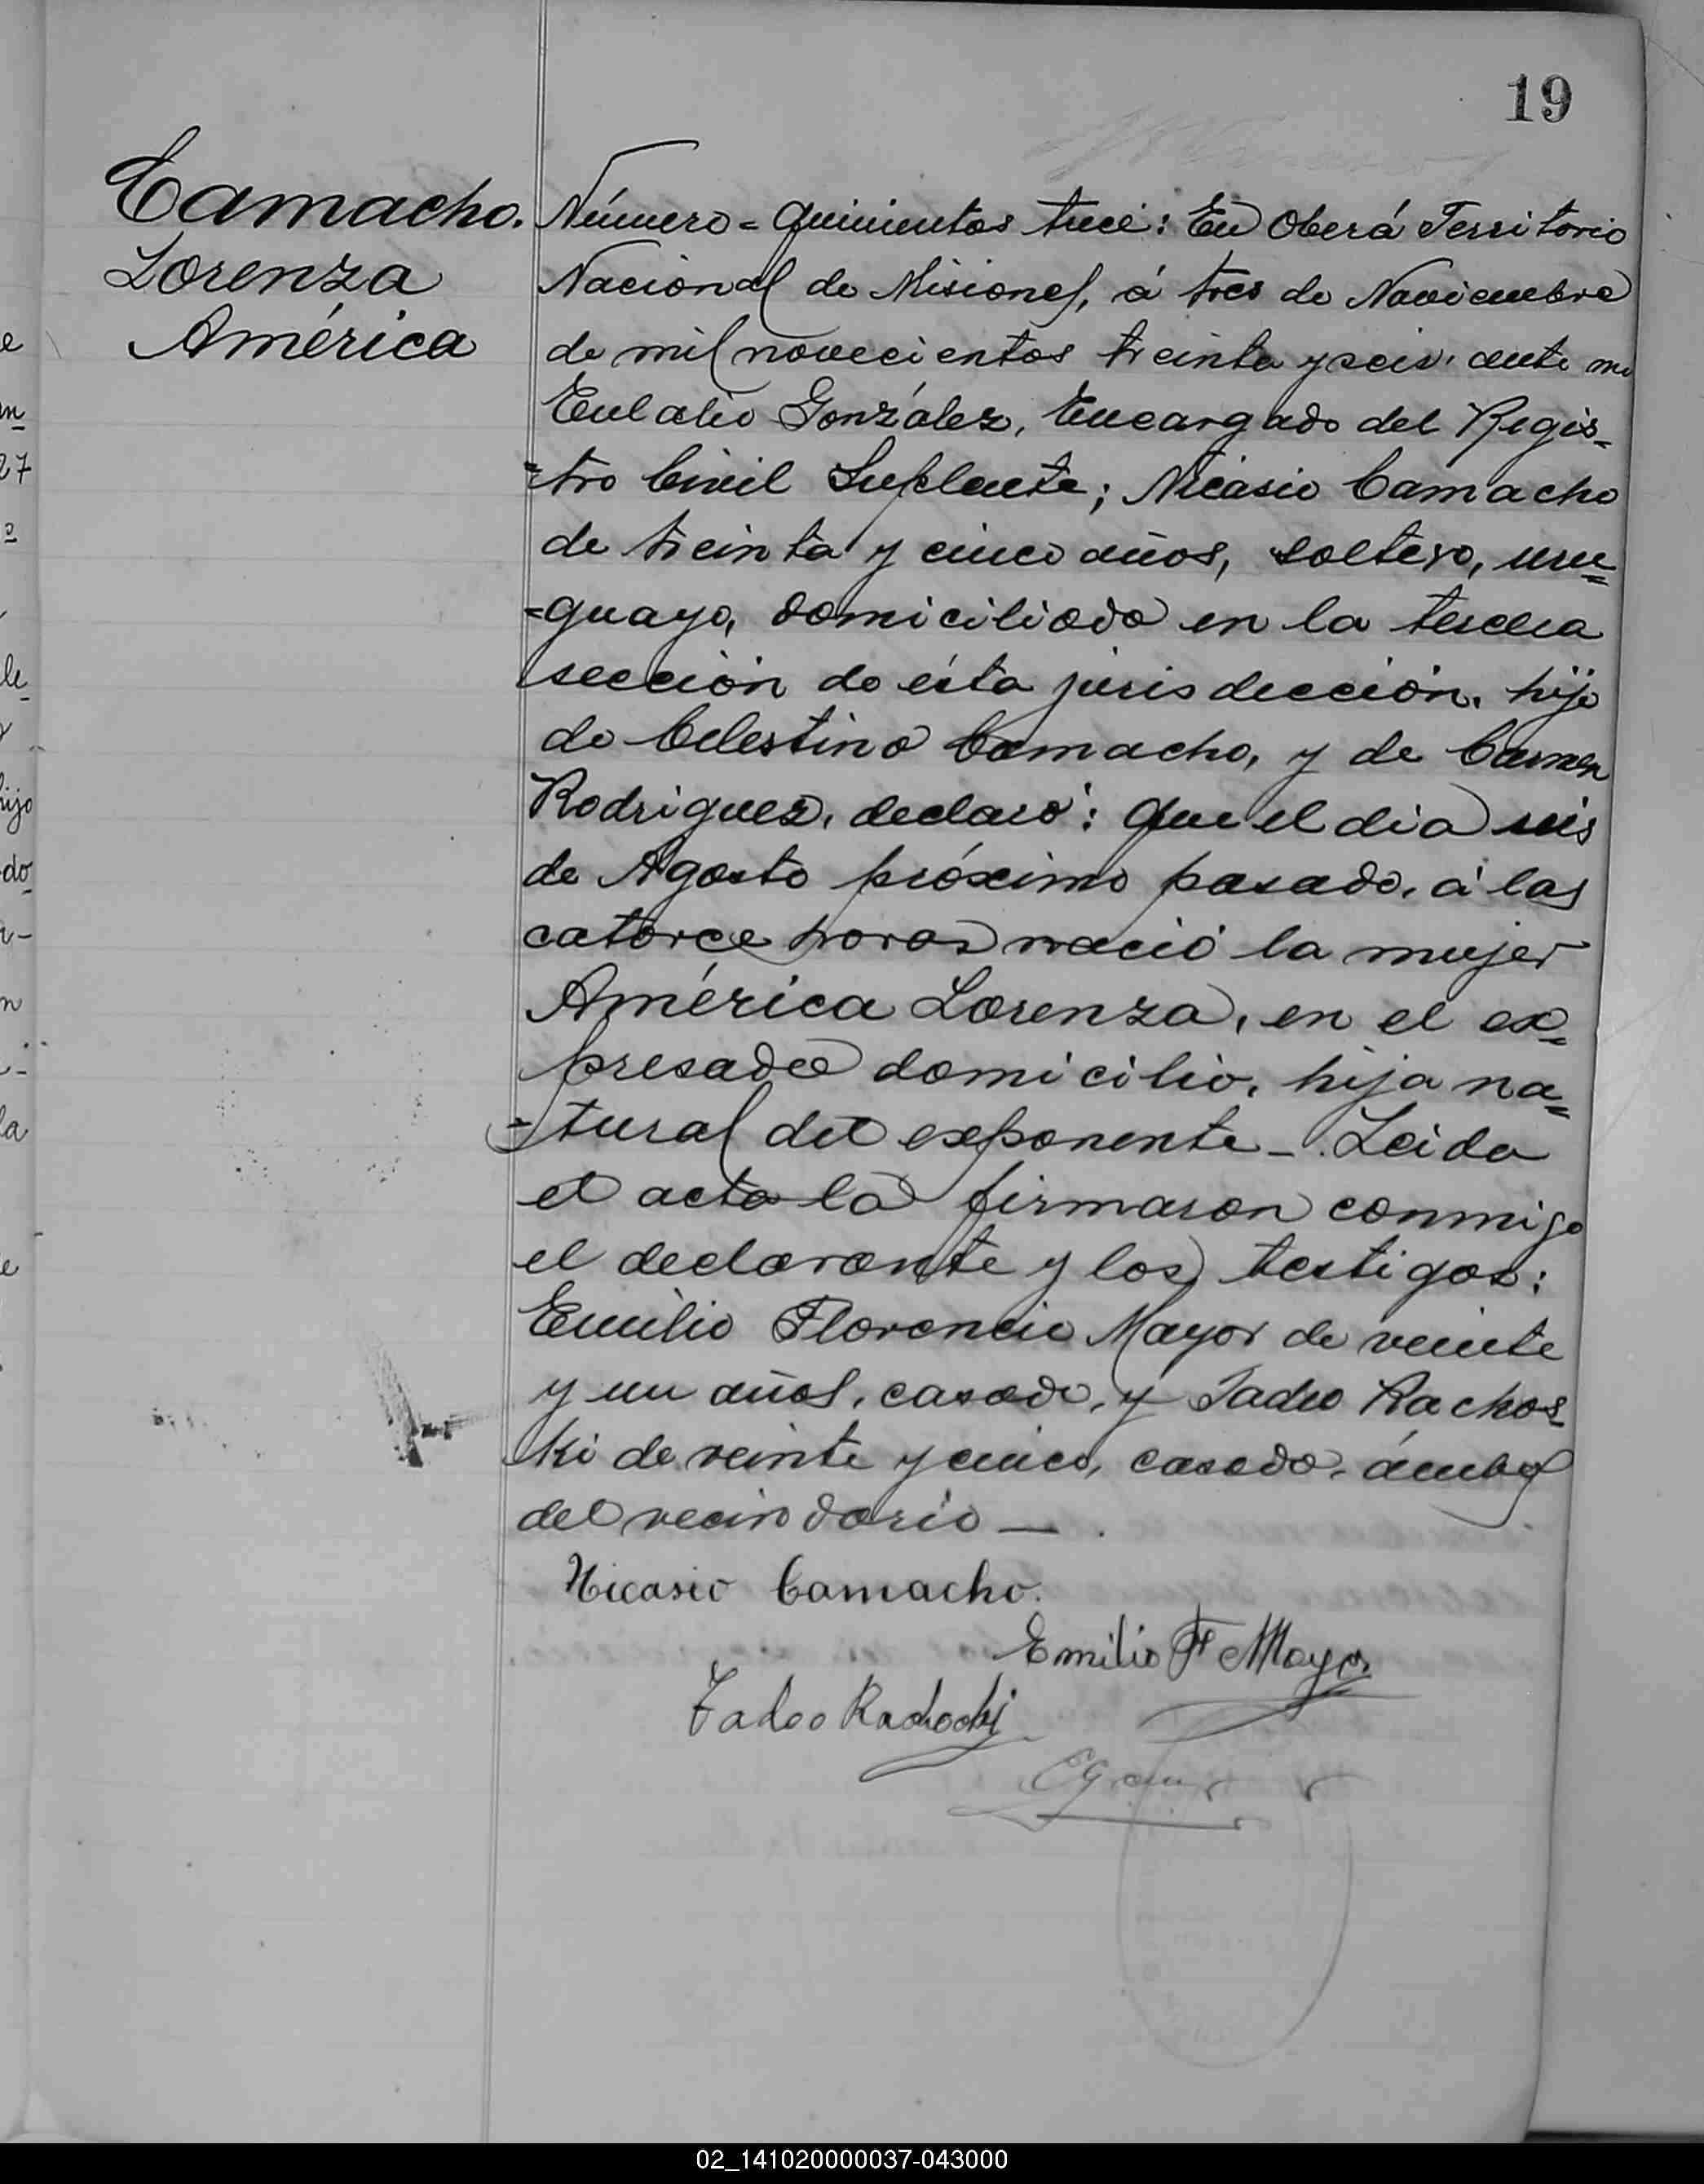 19
Camacho.
Lorenza
América
Número = quinientos trece: En Oberá Territorio
Nacional de Misiones, á tres de Noviembre
de mil novecientos treinta y seis, ante mi
Eulalio González, Encargado del Regis-
=tro Civil Suplente; Nicasio Camacho
de treinta y cinco años, soltero, uru=
=guayo, domiciliado en la tercera
sección de ésta jurisdicción, hijo
de Celestino Camacho, y de Carmen
Rodriguez, declaró: Que el dia seis
de Agosto próximo pasado, á las
catorce horas nació la mujer
América Lorenza, en el ex=
presado domicilio, hija na=
=tural del exponente -. Leida
el acta la firmaron conmigo
el declarante y los testigos:
Emilio Florencio Mayor de veinte
y un años, casado, y Tadeo Rachos-
ki de veinte y cinco, casado, ámbos
del vecindario — .
Nicasio Camacho.
Emilio F Mayor
Tadeo Rachoski
27
hijo
do
la
02_141020000037-043000